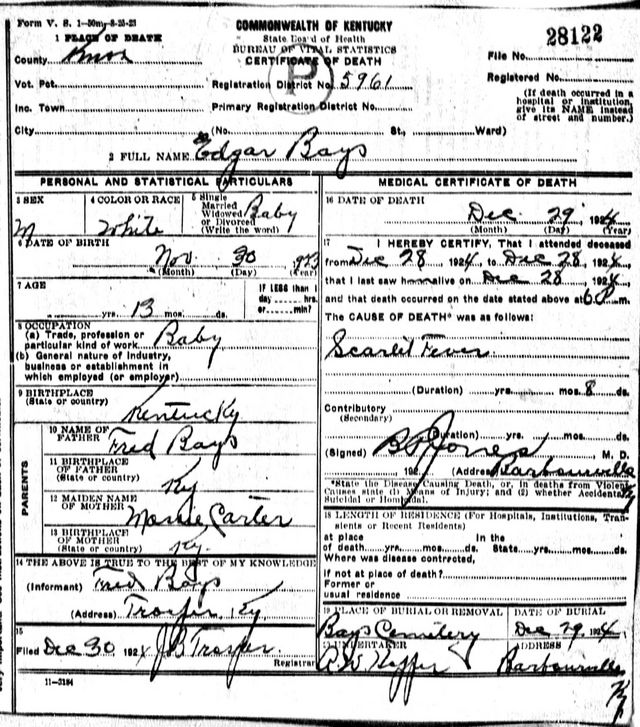 Form V. S. 1-50m-8-25-23
COMMONWEALTH OF KENTUCKY
State Board of Health
BUREAU OF VITAL STATISTICS
CERTIFICATE OF DEATH
28122
1 PLACE OF DEATH
County Knox
File No.
Vot. Pct.
Registration District No. 5961
Registered No.
Inc. Town
Primary Registration District No.
(If death occurred in a hospital or institution, give its NAME instead of street and number.)
City (No. St., Ward)
P
2 FULL NAME Edgar Bays
PERSONAL AND STATISTICAL PARTICULARS
3 SEX
M
4 COLOR OR RACE
White
5 Single
Married
Widowed
or Divorced
(Write the word)
Baby
6 DATE OF BIRTH
Nov. 30 1923
(Month) (Day) (Year)
7 AGE
yrs. 13 mos. ds.
IF LESS than 1
day hrs.
or min?
8 OCCUPATION
(a) Trade, profession or
particular kind of work Baby
(b) General nature of industry,
business or establishment in
which employed (or employer)
9 BIRTHPLACE
(State or country)
Kentucky
PARENTS
10 NAME OF
FATHER
Fred Bays
11 BIRTHPLACE
OF FATHER
(State or country)
Ky
12 MAIDEN NAME
OF MOTHER
Carter
13 BIRTHPLACE
OF MOTHER
(State or country)
Ky.
14 THE ABOVE IS TRUE TO THE BEST OF MY KNOWLEDGE
(Informant) Fred Bays
(Address) Trosper Ky
15
Filed Dec 30 1924 JB Trosper
Registrar
11-3184
MEDICAL CERTIFICATE OF DEATH
16 DATE OF DEATH
Dec. 29, 1924
(Month) (Day) (Year)
17 I HEREBY CERTIFY, That I attended deceased
from Dec 28 1924, to Dec 28, 1924,
that I last saw him alive on Dec 28, 1924,
and that death occurred on the date stated above at 6 m.
The CAUSE OF DEATH* was as follows:
Scarlet Fever
(Duration) yrs. mos. 8 ds.
Contributory
(Secondary)
(Duration) yrs. mos. ds.
(Signed) Jones M. D.
192 (Address) Barbourville Ky
*State the Disease Causing Death, or, in deaths from Violent
Causes state (1) Means of Injury; and (2) whether Accidental,
Suicidal or Homicidal.
18 LENGTH OF RESIDENCE (For Hospitals, Institutions, Tran-
sients or Recent Residents)
at place In the
of death yrs. mos. ds. State yrs. mos. ds.
Where was disease contracted,
if not at place of death?
Former or
usual residence
19 PLACE OF BURIAL OR REMOVAL
Bays Cemetery
DATE OF BURIAL
Dec 29, 1924
20 UNDERTAKER
ADDRESS
Barbourville
Ky